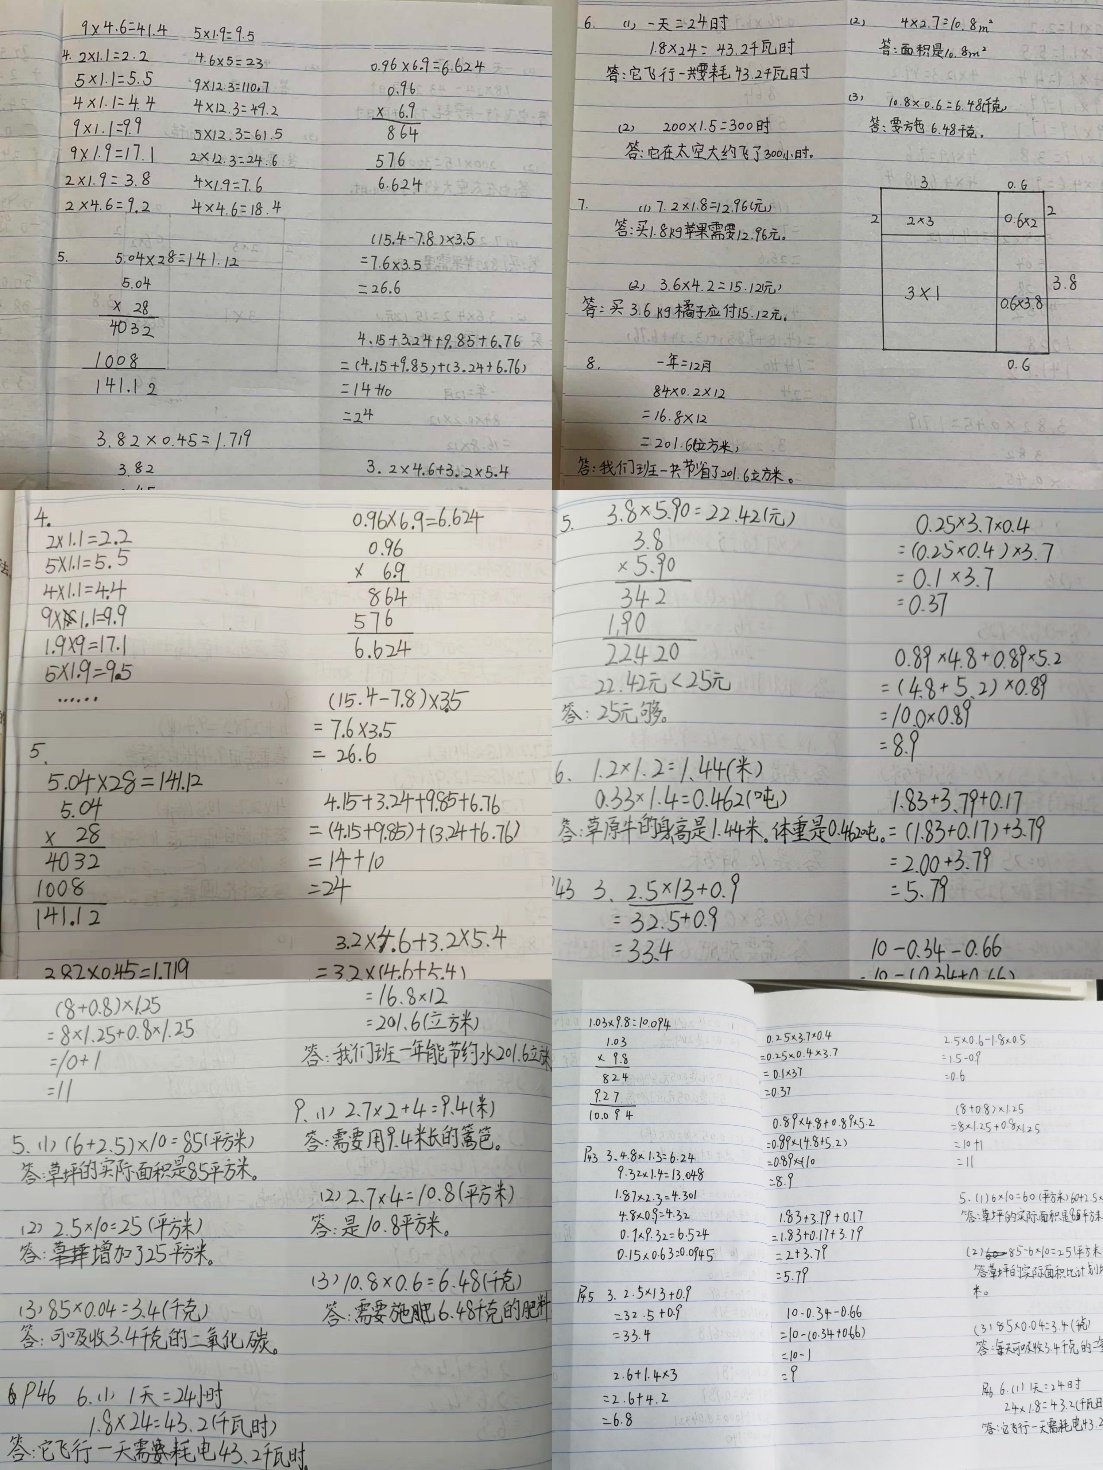 9×4.6=41.4
4. 2×1.1=2.2
5×1.1=5.5
4×1.1=4.4
9×1.1=9.9
9×1.9=17.1
2×1.9=3.8
2×4.6=9.2
5×1.9=9.5
4.6×5=23
9×12.3=110.7
4×12.3=49.2
5×12.3=61.5
2×12.3=24.6
4×1.9=7.6
4×4.6=18.4
5. 5.04×28=141.12
5.04
× 28
4032
1008
141.12
3.82×0.45=1.719
3.82
0.96×6.9=6.624
0.96
× 6.9
864
576
6.624
(15.4-7.8)×3.5
=7.6×3.5
=26.6
4.15+3.24+9.85+6.76
=(4.15+9.85)+(3.24+6.76)
=14+10
=24
3.2×4.6+3.2×5.4
6. (1) 一天=24时
1.8×24=43.2千瓦时
答:它飞行一共要耗43.2千瓦时
(2) 200×1.5=300时
答:它在太空大约飞了300小时。
7. (1) 7.2×1.8=12.96(元)
答:买1.8kg苹果需要12.96元。
(2) 3.6×4.2=15.12(元)
答:买3.6kg橘子应付15.12元。
8. 一年=12月
84×0.2×12
=16.8×12
=201.6(立方米)
答:我们班一共节省了201.6立方米。
(2) 4×2.7=10.8m²
答:面积是10.8m²
(3) 10.8×0.6=6.48千克
答:要方色6.48千克。
3 0.6
2 2×3 0.6×2 2
3×1 0.6×3.8 3.8
0.6
4.
2×1.1=2.2
5×1.1=5.5
4×1.1=4.4
9×1.1=9.9
1.9×9=17.1
5×1.9=9.5
……
5.
5.04×28=141.12
5.04
× 28
4032
1008
141.12
3.82×0.45=1.719
0.96×6.9=6.624
0.96
× 6.9
864
576
6.624
(15.4-7.8)×3.5
=7.6×3.5
=26.6
4.15+3.24+9.85+6.76
=(4.15+9.85)+(3.24+6.76)
=14+10
=24
3.2×4.6+3.2×5.4
=3.2×(4.6+5.4)
5. 3.8×5.90=22.42(元)
3.8
×5.90
342
190
22.420
22.42元<25元
答:25元够。
6. 1.2×1.2=1.44(米)
0.33×1.4=0.462(吨)
答:草原牛的身高是1.44米。体重是0.462吨。
P43 3. 2.5×13+0.9
=32.5+0.9
=33.4
0.25×3.7×0.4
=(0.25×0.4)×3.7
=0.1×3.7
=0.37
0.89×4.8+0.89×5.2
=(4.8+5.2)×0.89
=10.0×0.89
=8.9
1.83+3.79+0.17
=(1.83+0.17)+3.79
=2.00+3.79
=5.79
10-0.34-0.66
=10-(0.34+0.66)
(8+0.8)×1.25
=8×1.25+0.8×1.25
=10+1
=11
5. (1) (6+2.5)×10=85(平方米)
答:草坪的实际面积是85平方米。
(2) 2.5×10=25(平方米)
答:草坪增加了25平方米。
(3) 85×0.04=3.4(千克)
答:可吸收3.4千克的二氧化碳。
P46 6. (1) 1天=24小时
1.8×24=43.2(千瓦时)
答:它飞行一天需要耗电43.2千瓦时。
=16.8×12
=201.6(立方米)
答:我们班一年能节约水201.6立方米
9. (1) 2.7×2+4=9.4(米)
答:需要用9.4米长的篱笆。
(2) 2.7×4=10.8(平方米)
答:是10.8平方米。
(3) 10.8×0.6=6.48(千克)
答:需要施肥6.48千克的肥料
1.03×9.8=10.094
1.03
× 9.8
824
927
10.094
P43 3. 4.8×1.3=6.24
9.32×1.4=13.048
1.87×2.3=4.301
4.8×0.9=4.32
0.7×9.32=6.524
0.15×0.63=0.0945
P45 3. 2.5×13+0.9
=32.5+0.9
=33.4
2.6+1.4×3
=2.6+4.2
=6.8
0.25×3.7×0.4
=0.25×0.4×3.7
=0.1×3.7
=0.37
0.89×4.8+0.89×5.2
=0.89×(4.8+5.2)
=0.89×10
=8.9
1.83+3.79+0.17
=1.83+0.17+3.79
=2+3.79
=5.79
10-0.34-0.66
=10-(0.34+0.66)
=10-1
=9
2.5×0.6-1.8×0.5
=1.5-0.9
=0.6
(8+0.8)×1.25
=8×1.25+0.8×1.25
=10+1
=11
5. (1) 6×10=60(平方米) 60+2.5×
答:草坪的实际面积是85平方米
(2) 85-6×10=25(平方米
答:草坪的实际面积比计划
米。
(3) 85×0.04=3.4(千克)
答:每天可吸收3.4千克的二
6. (1) 1天=24时
24×1.8=43.2(千瓦时
答:它飞行一天需耗电43.2